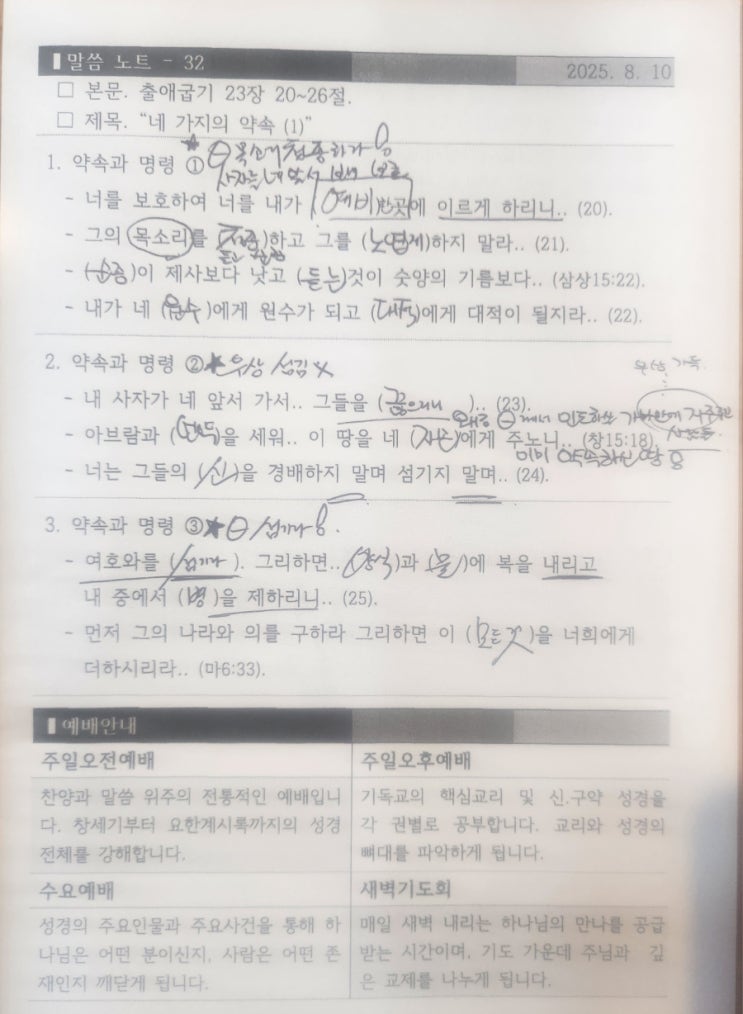 ▮말씀 노트 - 32
2025. 8. 10
□ 본문. 출애굽기 23장 20~26절.
□ 제목. “네 가지의 약속 (1)”
1. 약속과 명령 ① ★ 목소리 청종하라
사자를 네 앞서 보내
- 너를 보호하여 너를 내가 (예비)한 곳에 이르게 하리니.. (20).
- 그의 목소리를 (청종)하고 그를 (노엽게)하지 말라.. (21).
듣고
- (순종)이 제사보다 낫고 (듣는)것이 숫양의 기름보다.. (삼상15:22).
- 내가 네 (원수)에게 원수가 되고 (대적)에게 대적이 될지라.. (22).
2. 약속과 명령 ②★ 우상 섬김 X
- 내 사자가 네 앞서 가서.. 그들을 (끊으리니 ).. (23).
- 아브람과 (언약)을 세워.. 이 땅을 네 (자손)에게 주노니.. (창15:18).
이미 약속하신 땅
- 너는 그들의 (신)을 경배하지 말며 섬기지 말며.. (24).
3. 약속과 명령 ③★ 섬기라
- 여호와를 (섬기라). 그리하면.. (양식)과 (물)에 복을 내리고
내 중에서 (병)을 제하리니.. (25).
- 먼저 그의 나라와 의를 구하라 그리하면 이 (모든것)을 너희에게
더하시리라.. (마6:33).
▮예배안내
주일오전예배
찬양과 말씀 위주의 전통적인 예배입니
다. 창세기부터 요한계시록까지의 성경
전체를 강해합니다.
주일오후예배
기독교의 핵심교리 및 신.구약 성경을
각 권별로 공부합니다. 교리와 성경의
뼈대를 파악하게 됩니다.
수요예배
성경의 주요인물과 주요사건을 통해 하
나님은 어떤 분이신지, 사람은 어떤 존
재인지 깨닫게 됩니다.
새벽기도회
매일 새벽 내리는 하나님의 만나를 공급
받는 시간이며, 기도 가운데 주님과 깊
은 교제를 나누게 됩니다.